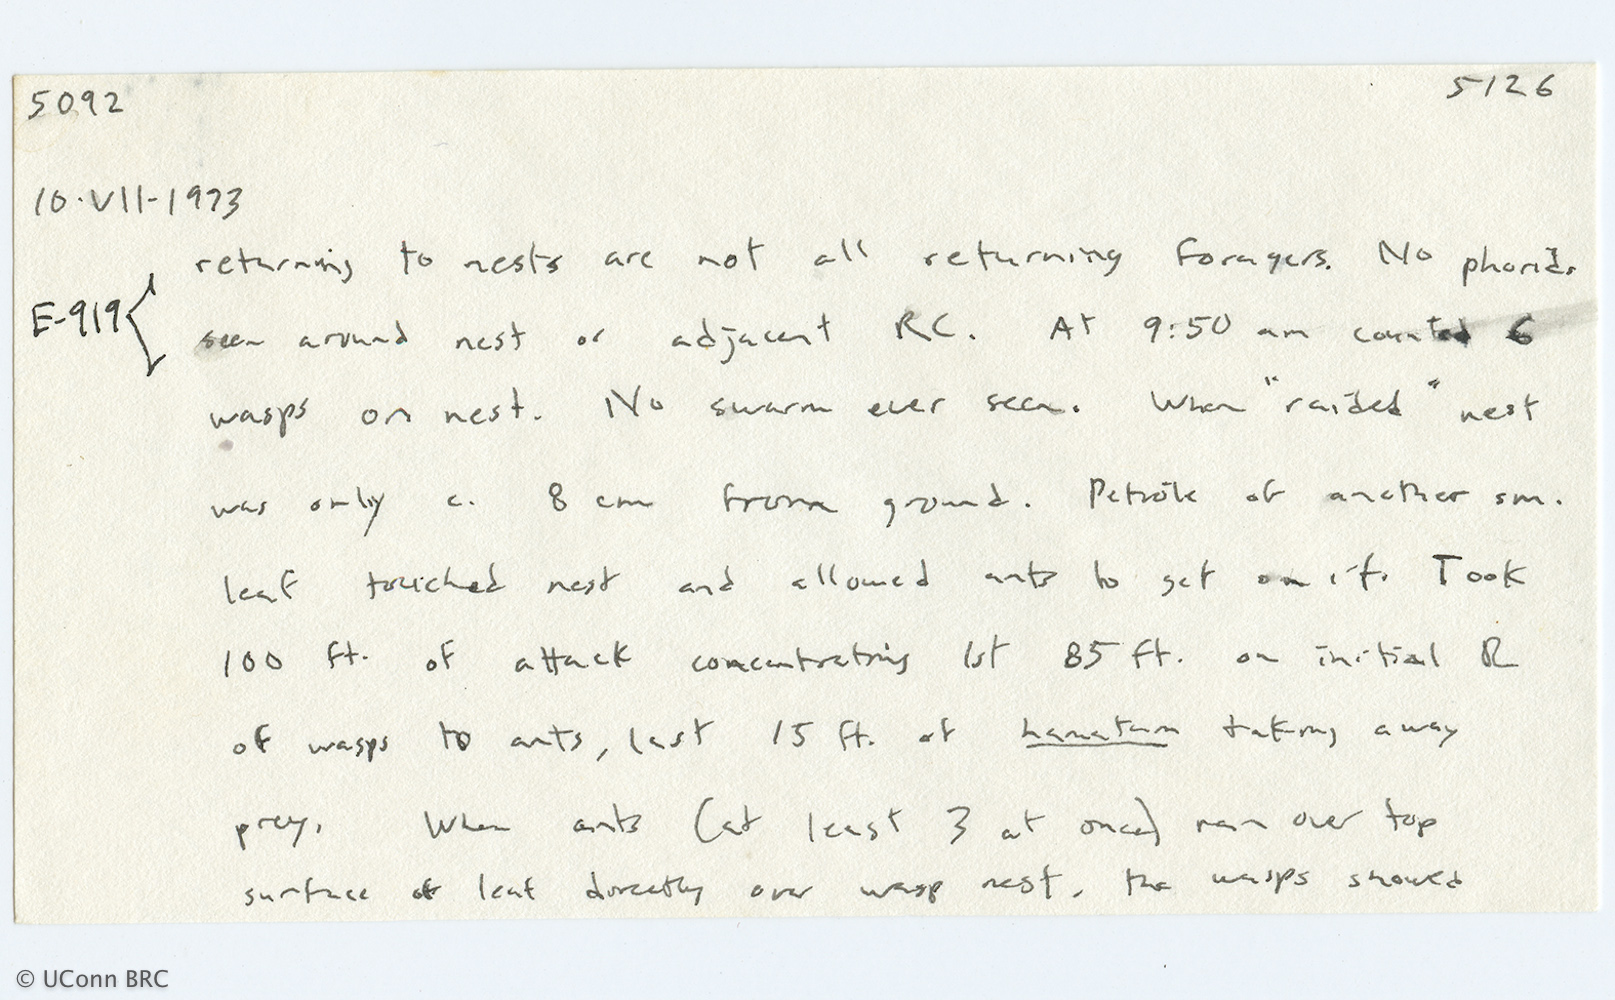 5092 5126
10·VII-1973
returning to nests are not all returning foragers. No phorids
E-919 { seen around nest or adjacent RC. At 9:50 am counted 6
wasps on nest. No swarm ever seen. When "raided" nest
was only c. 8 cm from ground. Petiole of another sm.
leaf touched nest and allowed ants to get on it. Took
100 ft. of attack concentrating 1st 85 ft. on initial R
of wasps to ants, last 15 ft. of hamatum taking away
prey. When ants (at least 3 at once) ran over top
surface of leaf directly over wasp nest, the wasps showed
© UConn BRC